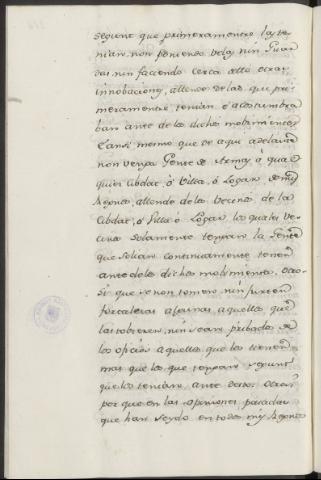 segunt que primeramente las te
nian, non poniendo velas nin Guar
das nin faciendo cerca dello otras
innobaciones, allende de las que pri-
meramente tenian e acostumbra
ban ante de los dichos mobimientos
E ansi mesmo que de aqui adelante
non venga Gente de Armas à qual
quier Cibdat, ò Villa, ò Logar de mis
Regnos, allende de los Vecinos de la
Cibdat, ò Villa ò Logar, los quales ve
cinos solamente tengan la Gente
que solian continuamente tener
ante de los dichos mobimientos. Otro
si que se non tomen, nin furten
fortalezas algunas a aquellos que
las tobieren, nin sean pribados de
los oficios aquellos que los tienen
mas que los que tengan segunt
que los tenian, ante desto. Otrosi
por que en las opiniones pasadas
que han seydo en todos mis Regnos